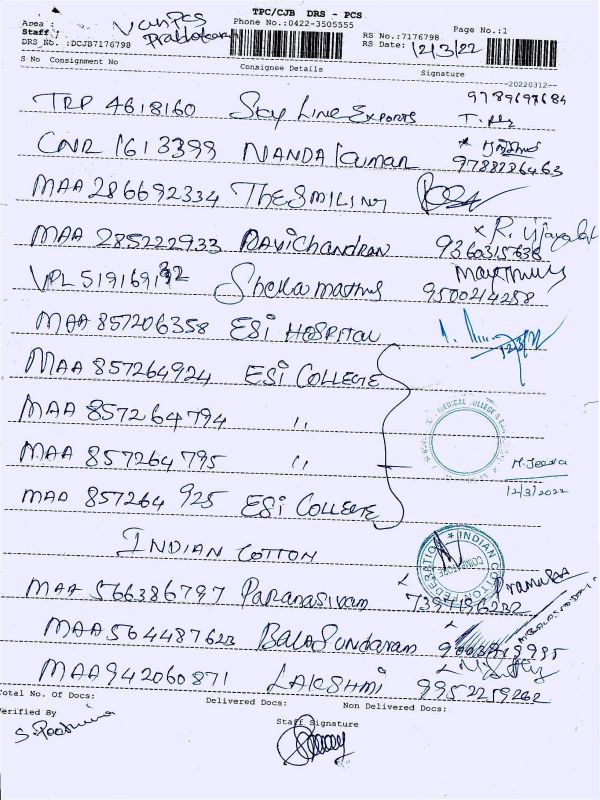 TPC/CJB DRS - PCS
Area :
Phone No.:0422-3505555
Staff :
Prabhakaran
DRS No. :DCJB7176798
RS No.:7176798
Page No.:1
RS Date: 12/3/22
S No Consignment No
Consignee Details
Signature
--20220312--
TRP 4618160 Sky Line Exports
CNR 1613399 NANDA Kumar 9788226463
MAA 286692334 THE SMILING
MAA 285222933 RAViChandran 9360315636
VPL 519169192 Shekamathus 9500214258
MAA 857206358 ESI HOSPITAL
MAA 857264924 ESI COLLEGE
MAA 857264794 ,,
MAA 857264795 ,,
M. Jeeva
12/3/2022
MAA 857264925 ESI COLLEGE
INDIAN COTTON
INDIAN COTTON FEDERATION
MAA 566386797 Paranasivam 7397196232
MAA 564487623 BALASUNDARAM
MAA942060871 LAKSHMI 9952259262
Total No. Of Docs:
Delivered Docs:
Non Delivered Docs:
Verified By
Staff Signature